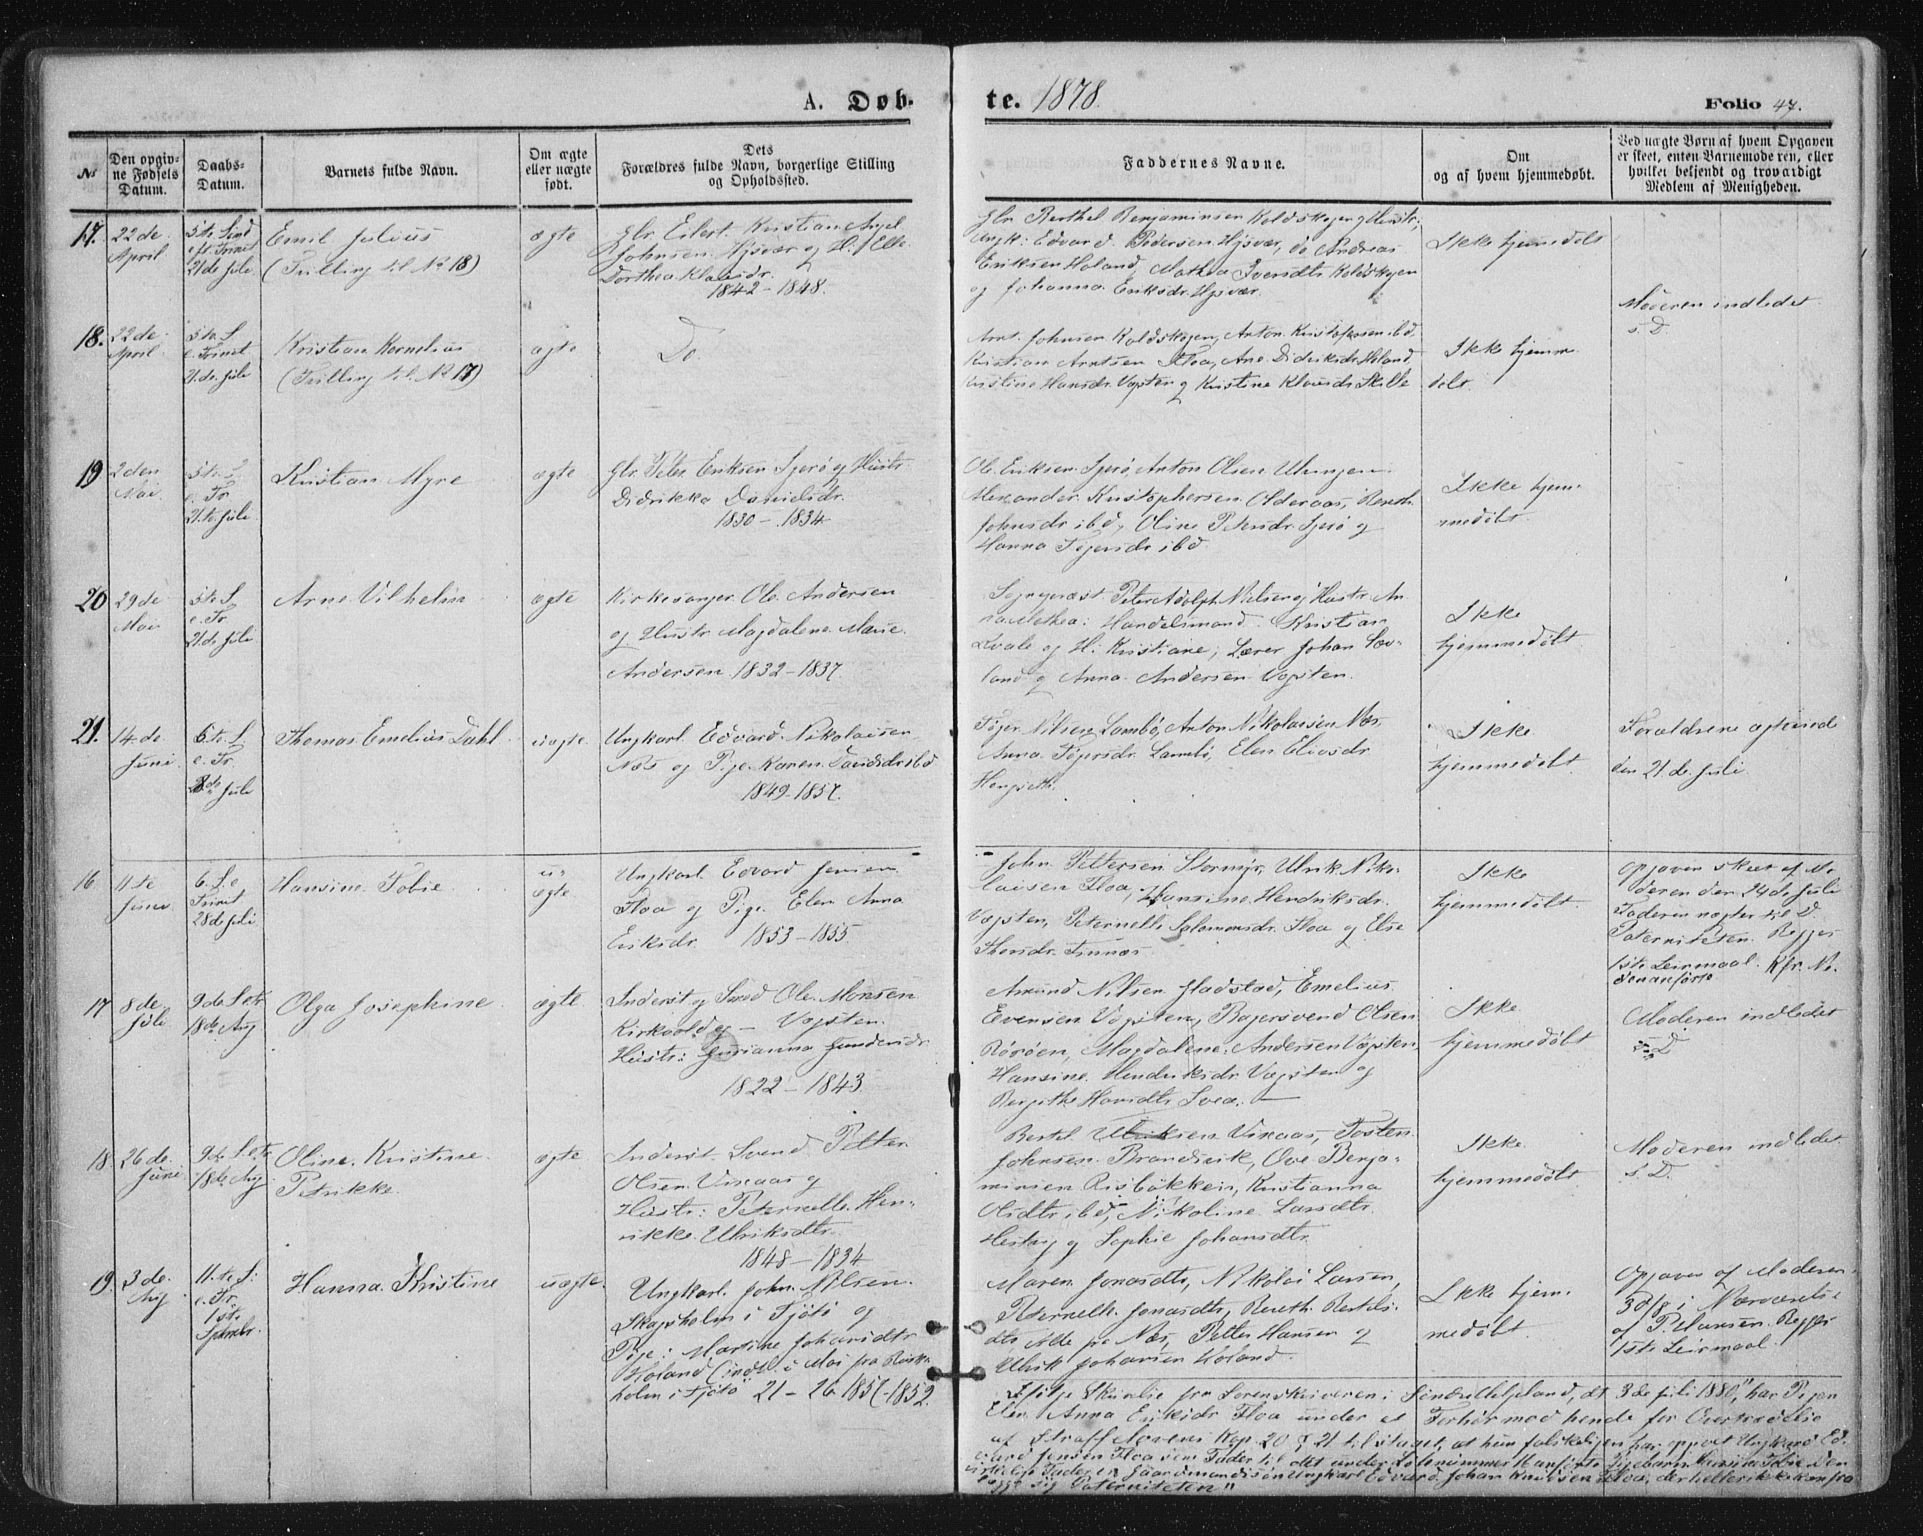 A. Døb-
te. 1878.
Folio 47.
№
Den opgiv-
ne Fødsels
Datum.
Daabs-
Datum.
Barnets fulde Navn.
Om ægte
eller uægte
født.
Dets
Forældres fulde Navn, borgerlige Stilling
og Opholdssted.
Faddernes Navne.
Om
og af hvem hjemmedøbt.
Ved uægte Børn af hvem Opgaven
er skeet, enten Barnemoderen, eller
hvilket bekjendt og troværdigt
Medlem af Menigheden.
17.
22de
April
5te Sönd
e ft. Trinit
21de Juli
Emil Julius
(Tvilling til No 18)
ægte
Gbr Eilert Kristian Axel
Johnsen Hysvær og H. Elle
Dorthea Klausdr.
1842 - 1848.
Gbr Berthel Benjaminsen Koldskogen og Hustr,
Ungk: Edvard Pedersen Hysvær, do Andreas
Eriksen Holand, Mathea Iversdtr Koldskogen
og Johanna Eriksdr. Hysvær.
Ikke hjemmedøbt
Moderen indledet
s. D.
18.
22de
April
5te S.
e. Trinit
21.de Juli
Kristian Kornelius
(Tvilling til No 17)
ægte
Do.
Arnt Johnsen Koldskogen, Anton Kristofersen ibd.
Kristian Arntsen Floa, Ane Didriksdr. Holand
Kristine Hansdr. Vegsten og Kristine Klausdr. Skille
Ikke hjemm
døbt
19
2den
Mai
5te S.
e. Tr.
21.de Juli
Kristian Myre
ægte
Gbr Peter Eriksen Igerø og Hustr
Didrikka Danielsdr.
1830 - 1834
Ole Eriksen Igerø, Anton Olsen Ulvingen
Alexander Kristophersen Olderaas, Bereth
Johnsdr ibd, Oline Petersdr. Igerø og
Hanna Tøgersdr ibd.
Ikke hjem-
medøbt
20
29de
Mai
5te S.
e. Tr.
21.de Juli
Arne Vilhelm
ægte
Kirkesanger Ole Andersen
og Hustr Magdalene Marie
Andersen 1832 - 1837.
Sognepræst Peter Adolph Nilsen og Hustr. An
na Methea: Handelsmand Kristian
Qvale og H. Kristiane; Lærer Johan Løv-
land og Anna Andersen Vegsten.
Ikke
hjemmedøbt
21.
14.de
Juni
6te S.
e. Tr.
28de Juli
Thomas Emelius Dahl
uægte
Ungkarl Edvard Nikolaisen
Næs og Pige Karen Davidsdr ibd
1849 - 1857.
Tøger Nilsen Lambø, Anton Nikolaisen Næs
Anna Tøgersdr. Lambø, Elen Eliasdr
Ikke
hjemmedøbt
Forældrene ægteviede
den 21.de Juli
16.
11te
Juni
6. S. e
Trinit
28de Juli
Hansine Tobie
u-
ægte
Ungkarl Edvard Jensen
Floa og Pige Elen Anna
Eriksdr. 1853 - 1855
John Pettersen Stormyr, Ulrik Niko-
laisen Floa, Hansine Hendriksdr.
Vegsten, Peternelle Salomonsdr. Floa og Else
Ikke
hjemmedøbt
Opgaven skeet af Mo
deren den 24de Juli
Faderen nægter til D.
Paterniteten. Begges
1ste Leiermaal. Kfr. Ne
denanførte
17
8de
Juli
9de S. e. tr
18de Aug
Olga Josephine
ægte
Inderst og Smed Ole Monsen
Kirkvold og - Vegsten
Hustr: Gurianna Gundersdr
1822 - 1843
Amund Nilsen Hadstad, Emelius
Evensen Vegsten, Bagersvend Olsen
Rørøen, Magdalene Andersen Vegsten,
Hansine Hendriksdr Vegsten og
Bergithe Hansdtr Svea.
Ikke
hjemmedøbt
Moderen indledet
s. D
18
26de
Juni
9de S. e. tr
18de Aug
Oline Kristine
Petrikke.
ægte
Inderst Svend Petter
Olsen Vixaas og
Hustr: Peternelle Hen-
rikke Ulriksdtr
1848 - 1834
Bertel Ulriksen Vixaas, Tosten
Johnsen Brandsvik, Ove Benja-
minsen Risbakken, Kristianna
Olsdtr ibd, Nikoline Larsdtr
og Sophie Johansdtr.
Ikke
hjemmedøbt
Moderen indledet
s. D.
19.
3de
Aug
11.te S.
e. Tr.
1ste
Septmbr.
Hanna Kristine
uægte
Ungkarl John Nilsen
Skogsholm i Tjøtø og
Pige: Martine Johansdtr
Holand (indk. i Mai fra Rosk-
holm i Tjøtø 21 - 26 1857 - 1852.
Maren Jonasdtr, Nikolai Larsen,
Peternelle Jonasdtr, Bereth Bertels-
dtr Alle på Næs, Petter Hansen og
Ulrik Johansen Holand.
Ikke hjem-
medøbt
Opgaven af Moderen
3d/8 i Nærværelse
af P. Hansen. Begges
1ste Leiermaal.
Ifølge Skrivelse fra Sorenskriveren i Søndre Helgeland, dt. 3de Juli 1880, "har Pigen
Elen Anna Eriksdr Floa under et Forhør mod hende for Overtrædelse
af Straffelovens Kap. 20 § 21 tilstaaet, at hun falskeligen har opgivet Ungkarl Ed-
vard Jensen Floa som Fader til det under Løbenummer 16 anførte Pigebarn Hansine Tobie. Den
virkelige Fader er Gaardmandssøn Ungkarl Edvard Johan Knudsen Floa, der heller ikke kan fra
lægge sig Paterniteten"